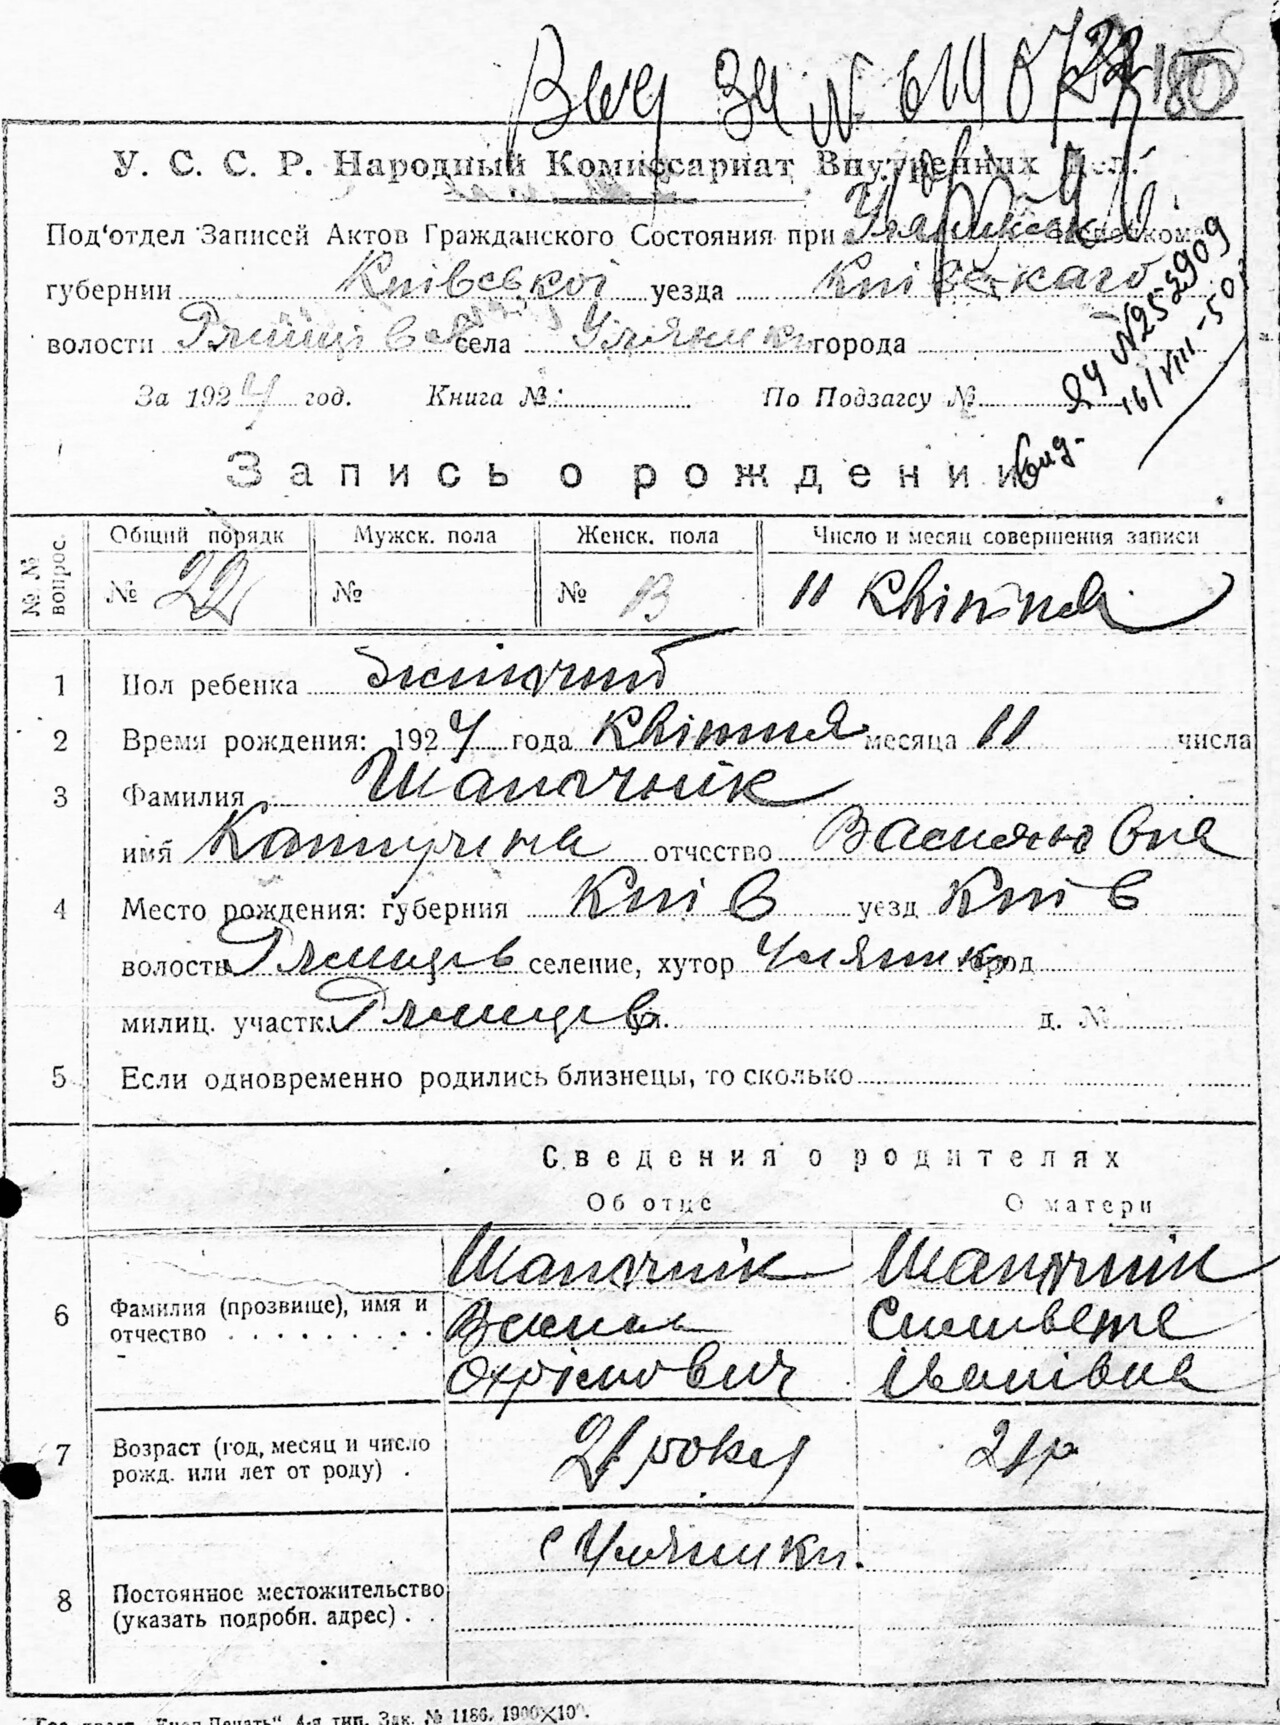 Выд
У. С. С. Р. Народный Комиссариат Внутренних Дел.
Под'отдел Записей Актов Гражданского Состояния при
губернии Київської уезда Київскаго
волости села Уляники города
За 1924 год. Книга №: По Подзагсу №
вид. 24 N252909
16/VIII-50
Запись о рождении
№ № вопрос. Общий порядк Мужск. пола Женск. пола Число и месяц совершения записи
№ 22 № № 13 11 Квітня
1 Пол ребенка жіночий
2 Время рождения: 1924 года Квітня месяца 11 числа
3 Фамилия Шапочнік
имя Катерина отчество Васильовна
4 Место рождения: губерния Київ уезд Київ
волость Ржищев селение, хутор Уляники город
милиц. участк. Ржищев ул. д. №
5 Если одновременно родились близнецы, то сколько
Сведения о родителях
Об отце О матери
6 Фамилия (прозвище), имя и отчество Шапочнік Шапочнік
Василь Єлисавета
Охрімович Іванівна
7 Возраст (год, месяц и число рожд. или лет от роду) 21 року 21 р
8 Постоянное местожительство (указать подробн. адрес) с Уляники.
4-я тип. Зак. № 1186.